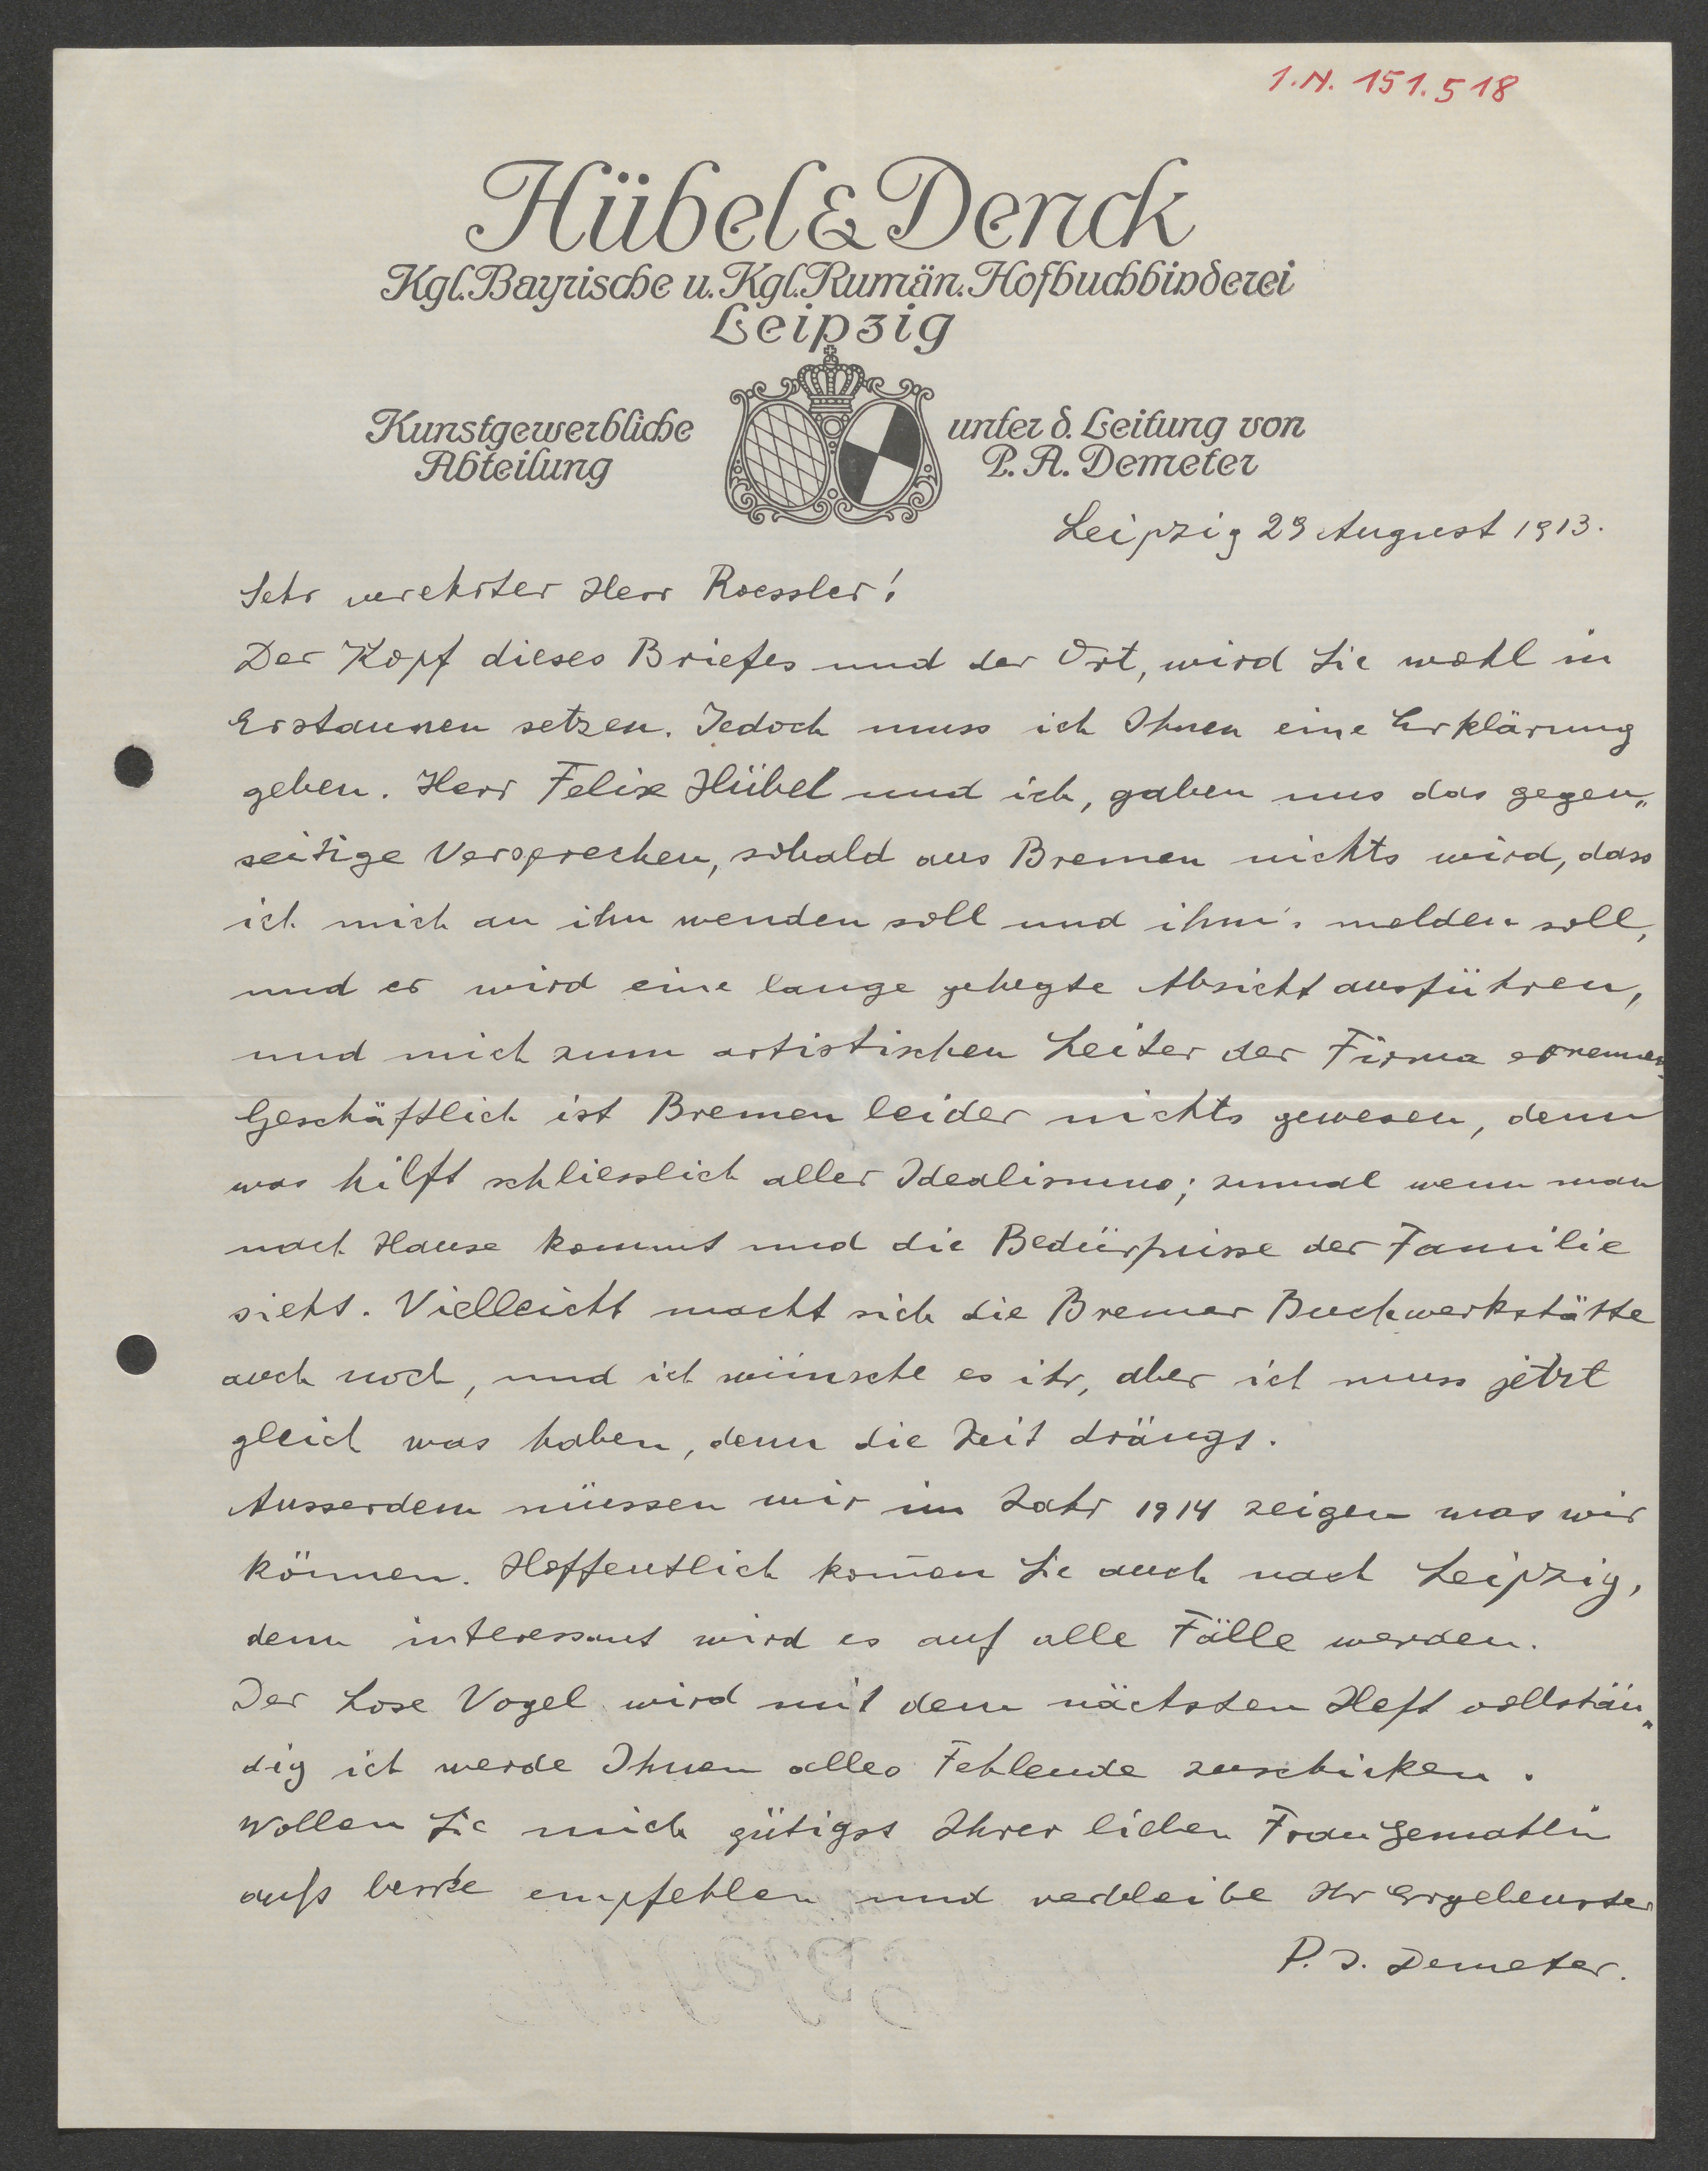 I.N. 151.518
Hübel & Denck
Kgl. Bayrische u. Kgl. Rumän. Hofbuchbinderei
Leipzig
Kunstgewerbliche
Abteilung
unter d. Leitung von
P. A. Demeter
Leipzig 29 August 1913.
Sehr verehrter Herr Roessler!
Der Kopf dieses Briefes und der Ort, wird Sie wohl in
Erstaunen setzen. Jedoch muss ich Ihnen eine Erklärung
geben. Herr Felix Hübel und ich, gaben uns das gegen„
seitige Versprechen, sobald aus Bremen nichts wird, dass
ich mich an ihn wenden soll und ihm's melden soll,
und er wird eine lange gehegte Absicht ausführen,
und mich zum artistischen Leiter der Firma ernennen.
Geschäftlich ist Bremen leider nichts gewesen, denn
was hilft schliesslich aller Idealismus; zumal wenn man
nach Hause kommt und die Bedürfnisse der Familie
sieht. Vielleicht macht sich die Bremer Buchwerkstätte
auch noch, und ich wünsche es ihr, aber ich muss jetzt
gleich was haben, denn die Zeit drängt.
Ausserdem müssen wir im Jahr 1914 zeigen was wir
können. Hoffentlich kom̄en Sie auch nach Leipzig,
denn interessant wird es auf alle Fälle werden.
Der Lose Vogel wird mit dem nächsten Heft vollstän„
dig ich werde Ihnen alles Fehlende zuschicken.
Wollen Sie mich gütigst Ihrer lieben Frau Gemahlin
aufs beste empfehlen und verbleibe Ihr Ergebenster
P. A. Demeter.